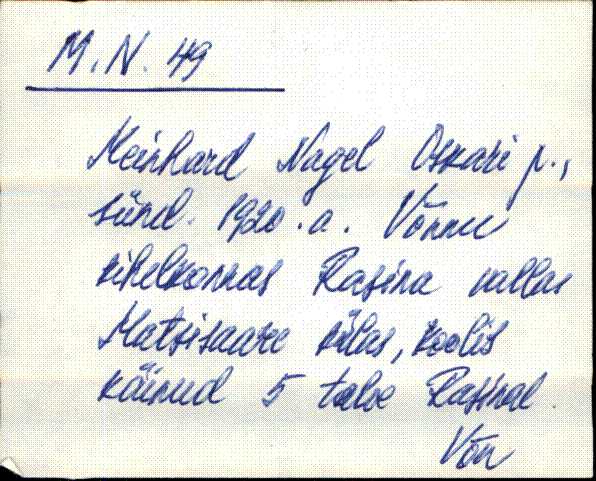 M. N. 49
Meinhard Nagel Oskari p.,
sünd. 1920. a. Võnnu
kihelkonnas Rasina vallas
Matsisaare külas, koolis
käinud 5 talve Rasinal.
Võn